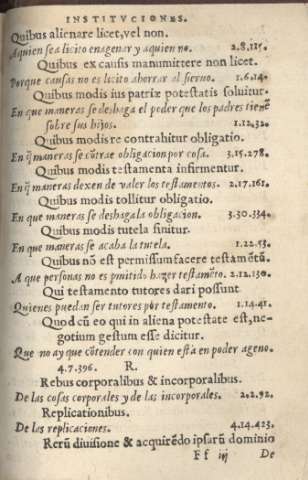 INSTITVCIONES.
Quibus alienare licet, vel non.
Aquien sea licito enagenar y aquien no. 2.8.115.
Quibus ex causis manumittere non licet.
Porque causas no es licito ahorrar al sieruo. 1.6.14.
Quibus modis ius patriæ potestatis soluitur.
En que maneras se deshaga el poder que los padres tienẽ
sobre sus hijos. 1.12.32.
Quibus modis re contrahitur obligatio.
En q̃ maneras se cõtrae obligacion por cosa. 3.15.278.
Quibus modis testamenta infirmentur.
En q̃ maneras dexen de valer los testamentos. 2.17.161.
Quibus modis tollitur obligatio.
En que maneras se deshaga la obligacion. 3.30.334.
Quibus modis tutela finitur.
En que maneras se acaba la tutela. 1.22.53.
Quibus nõ est permissum facere testamẽtũ.
A que personas no es ꝑmitido hazer testamẽto. 2.12.130.
Qui testamento tutores dari possunt.
Quienes puedan ser tutores por testamento. 1.14.41.
Quod cũ eo qui in aliena potestate est, ne-
gotium gestum esse dicitur.
Que no ay que cõtender con quien està en poder ageno.
4.7.396. R.
Rebus corporalibus & incorporalibus.
De las cosas corporales y de las incorporales. 2.2.92.
Replicationibus.
De las replicaciones. 4.14.423.
Rerũ diuisione & acquirẽdo ipsarũ dominio
Ff iij De